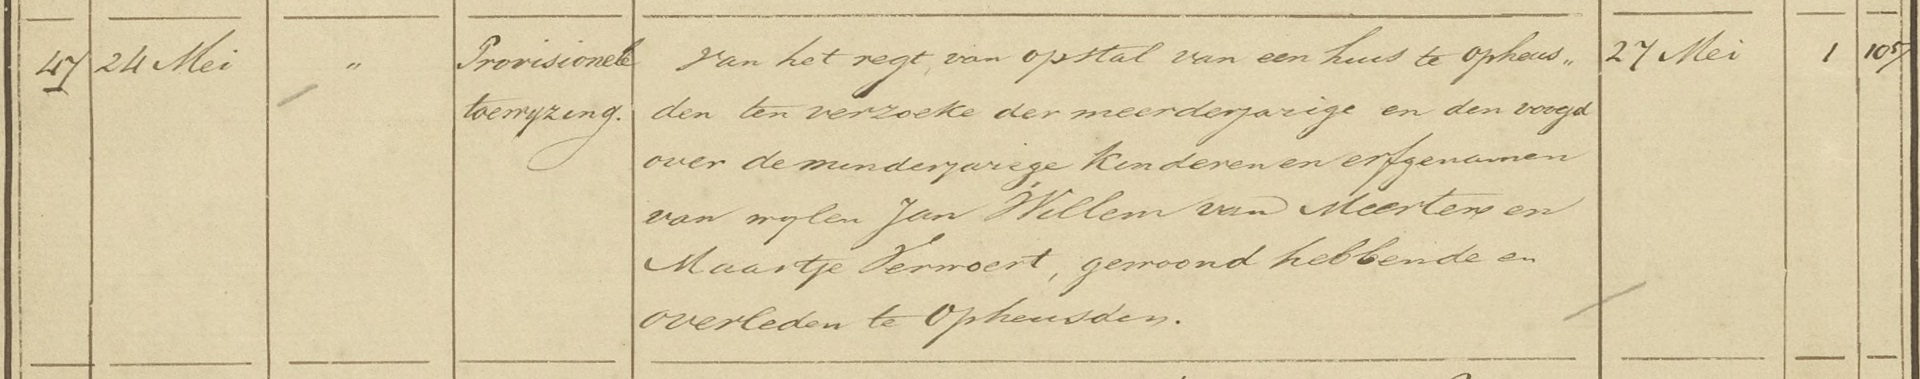 47 24 Mei " Provisionele Van het regt van opstal van een huis te Opheus„ 27 Mei 1 105
toewyzing. den ten verzoeke der meerderjarige en den voogd
over de minderjarige kinderen en erfgenamen
van wylen Jan Willem van Meerten en
Maartje Verwoert, gewoond hebbende en
overleden te Opheusden.